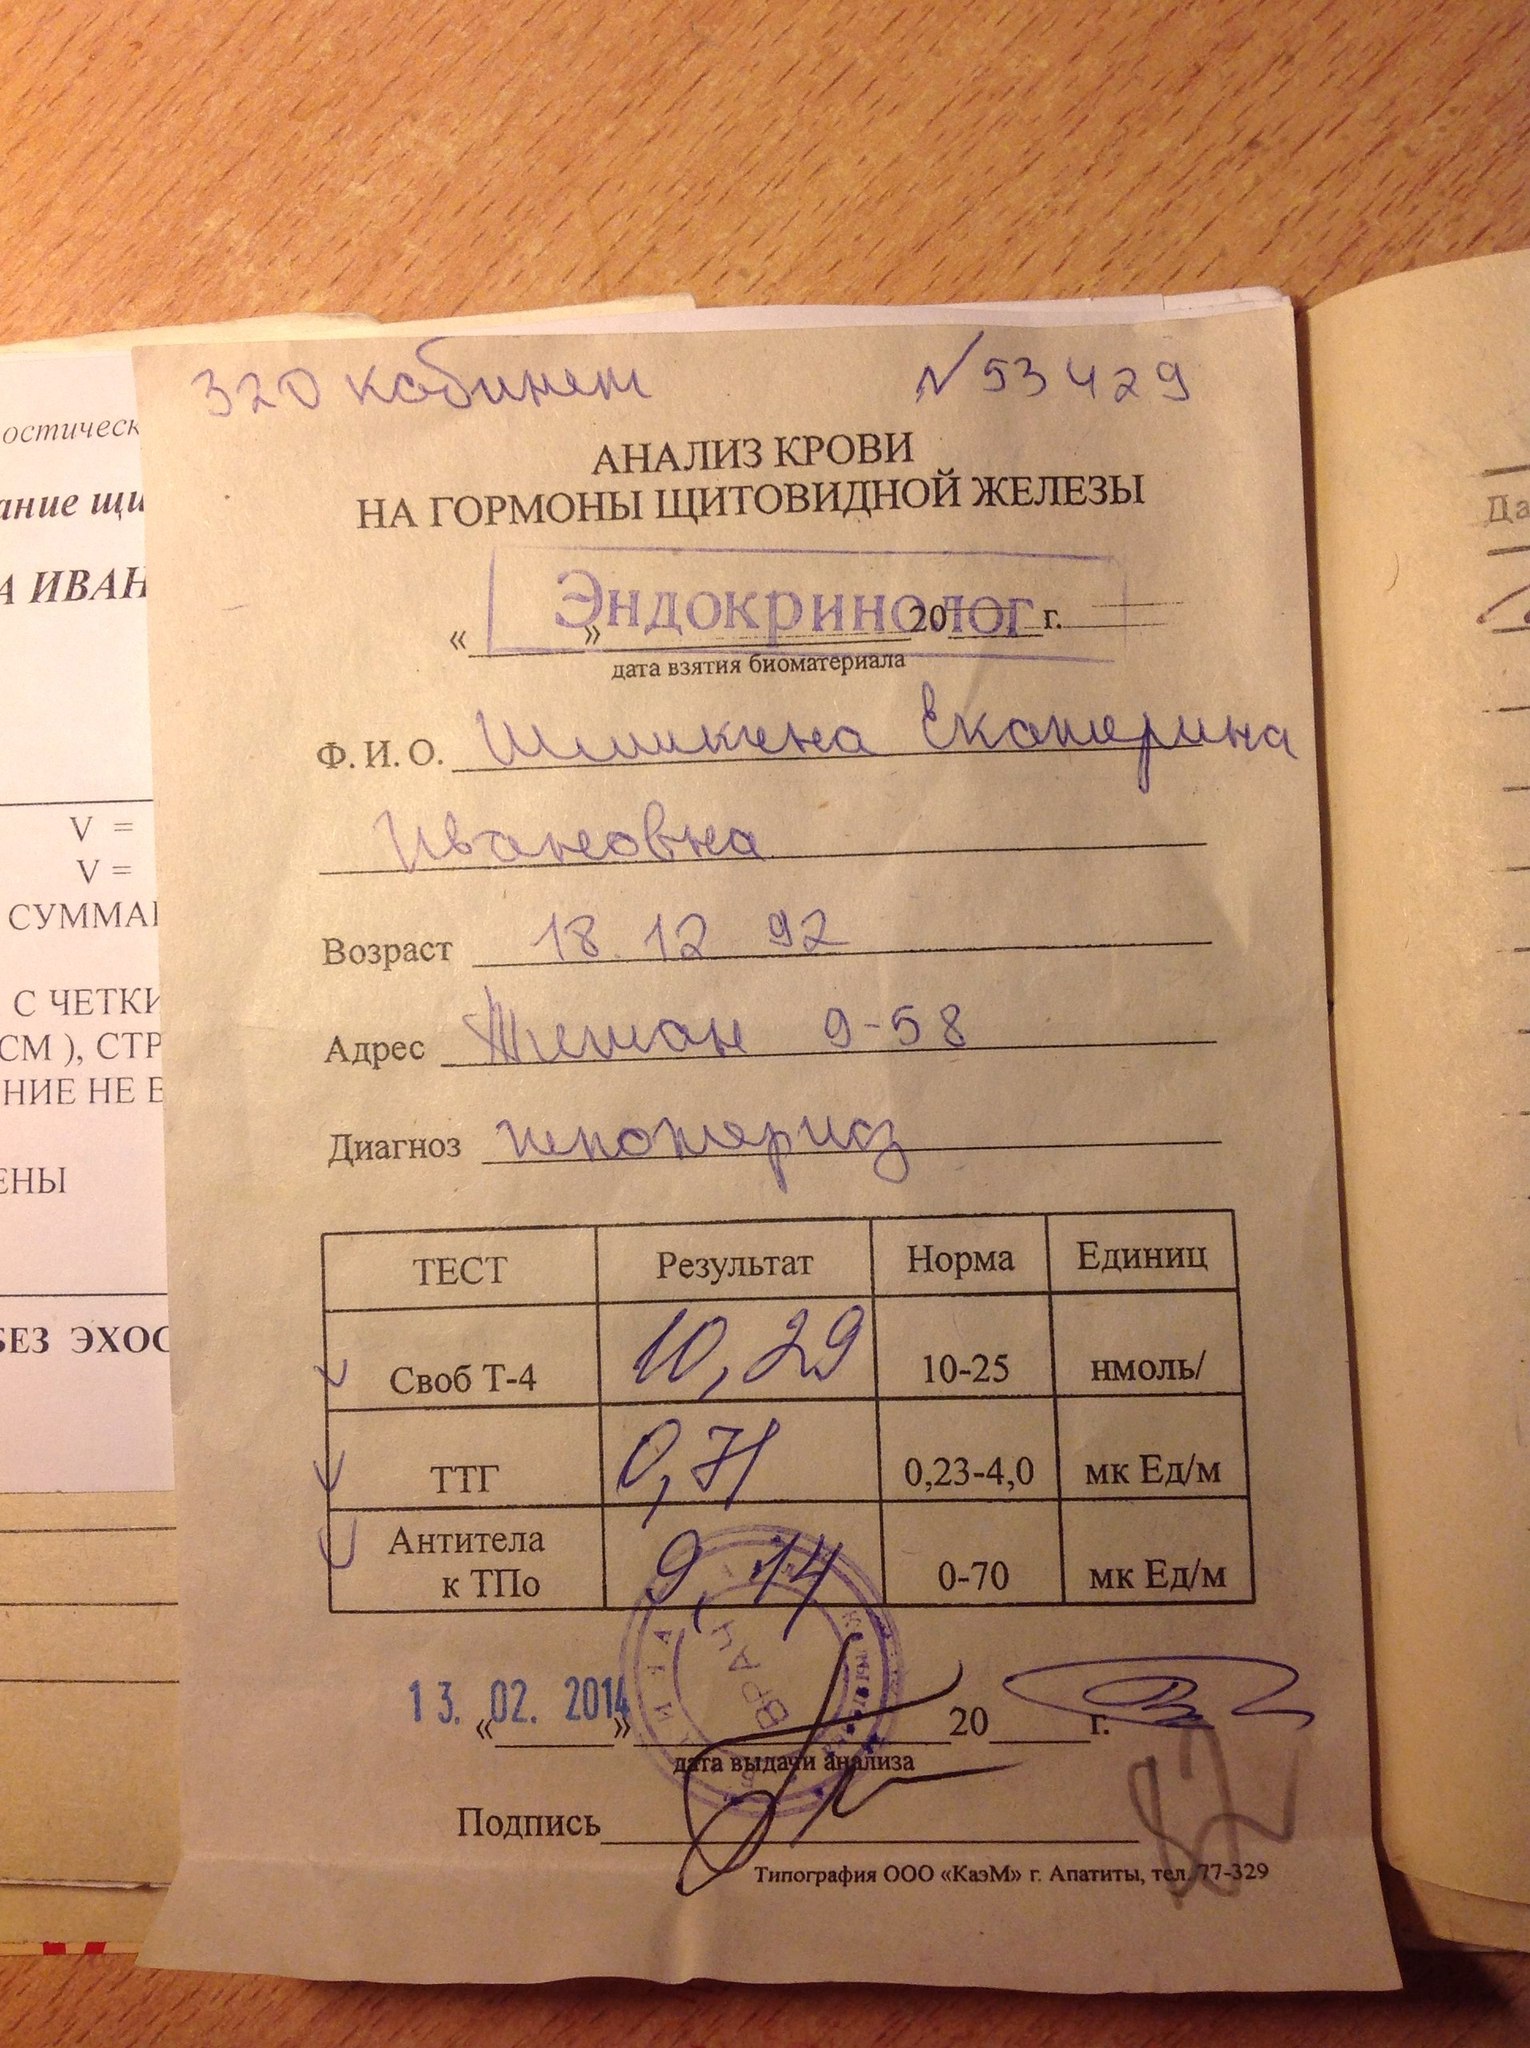 320 кабинет N 53429
АНАЛИЗ КРОВИ
НА ГОРМОНЫ ЩИТОВИДНОЙ ЖЕЛЕЗЫ
Эндокринолог
« » 20 г.
дата взятия биоматериала
Ф. И. О. Шишкина Екатерина
Ивановна
Возраст 18. 12 92
Адрес 9-58
Диагноз гипотериоз
ТЕСТ Результат Норма Единиц
Своб Т-4 10,29 10-25 нмоль/
ТТГ 0,71 0,23-4,0 мк Ед/м
Антитела
к ТПо 9,14 0-70 мк Ед/м
ВРАЧ
13. 02. 2014
« » 20 г.
дата выдачи анализа
Подпись
Типография ООО «КаэМ» г. Апатиты, тел. 77-329
остическ
ание щи
А ИВАН
V =
V =
СУММА
С ЧЕТКИ
СМ ), СТР
НИЕ НЕ В
ЕНЫ
БЕЗ ЭХОС
Да